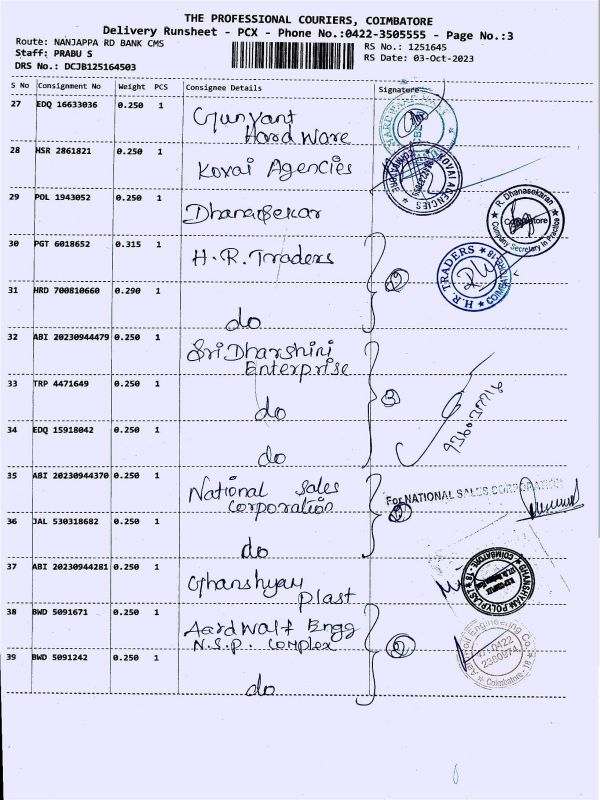 THE PROFESSIONAL COURIERS, COIMBATORE
Delivery Runsheet - PCX - Phone No.:0422-3505555 - Page No.:3
Route: NANJAPPA RD BANK CMS
RS No.: 1251645
Staff: PRABU S
RS Date: 03-Oct-2023
DRS No.: DCJB125164503
S No Consignment No Weight PCS Consignee Details Signature
27 EDQ 16633036 0.250 1 Gunvant
Hardware
28 HSR 2861821 0.250 1 Kovai Agencies
KOVAI AGENCIES
29 POL 1943052 0.250 1 Dhanasekar
R. Dhanasekaran
Company Secretary in Practice
30 PGT 6018652 0.315 1 H.R. Traders
H.R. TRADERS
31 HRD 700810660 0.290 1 do
2
32 ABI 20230944479 0.250 1 Sri Dharshini
Enterprise
33 TRP 4471649 0.250 1 do
3
34 EDQ 15918042 0.250 1 do
35 ABI 20230944370 0.250 1 National Sales
Corporation
For NATIONAL SALES CORPORATION
36 JAL 530318682 0.250 1 do
2
37 ABI 20230944281 0.250 1 Ghanshyam
Plast
GHANSHYAM POLYPLAST
COIMBATORE - 18
38 BWD 5091671 0.250 1 Aardwalf Engg
N.S.P. Complex
2
39 BWD 5091242 0.250 1 do
Engineering Co.
Coimbatore - 18